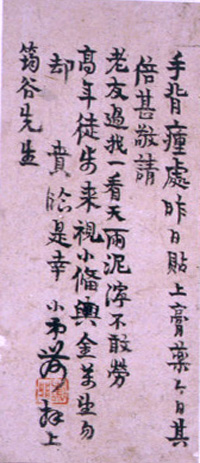 手背瘇處昨日貼上膏藥今日其
倍甚敬請
老友過我一看天雨泥濘不敢勞
高年徒步来視小俻輿金萬生勿
却 賁臨是幸 小弟 拜上
筠谷先生